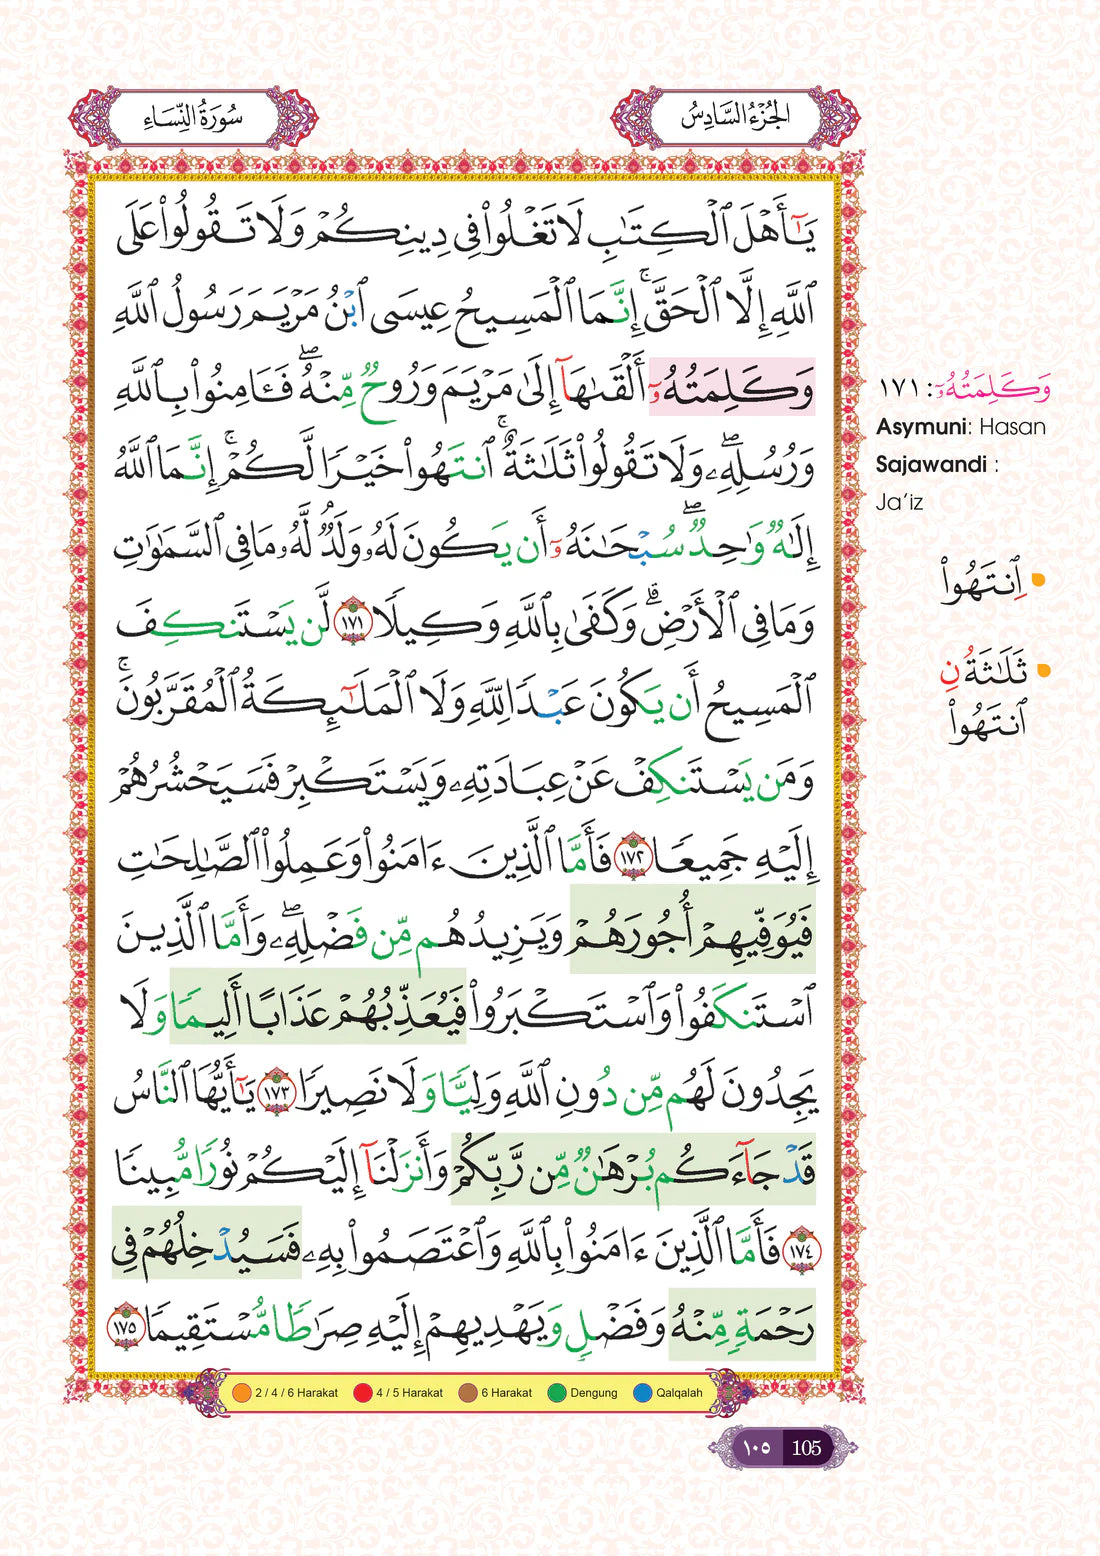 الجُزْءُ السَّادِسُ
سُورَةُ النِّسَاءِ
يَٰٓأَهْلَ ٱلْكِتَٰبِ لَا تَغْلُوا۟ فِى دِينِكُمْ وَلَا تَقُولُوا۟ عَلَى
ٱللَّهِ إِلَّا ٱلْحَقَّ ۚ إِنَّمَا ٱلْمَسِيحُ عِيسَى ٱبْنُ مَرْيَمَ رَسُولُ ٱللَّهِ
وَكَلِمَتُهُۥٓ أَلْقَىٰهَآ إِلَىٰ مَرْيَمَ وَرُوحٌ مِّنْهُ ۖ فَـَٔامِنُوا۟ بِٱللَّهِ
وَرُسُلِهِۦ ۖ وَلَا تَقُولُوا۟ ثَلَٰثَةٌ ۚ ٱنتَهُوا۟ خَيْرًا لَّكُمْ ۚ إِنَّمَا ٱللَّهُ
إِلَٰهٌ وَٰحِدٌ ۖ سُبْحَٰنَهُۥٓ أَن يَكُونَ لَهُۥ وَلَدٌ ۘ لَّهُۥ مَا فِى ٱلسَّمَٰوَٰتِ
وَمَا فِى ٱلْأَرْضِ ۗ وَكَفَىٰ بِٱللَّهِ وَكِيلًا ١٧١ لَّن يَسْتَنكِفَ
ٱلْمَسِيحُ أَن يَكُونَ عَبْدًا لِّلَّهِ وَلَا ٱلْمَلَٰٓئِكَةُ ٱلْمُقَرَّبُونَ ۚ
وَمَن يَسْتَنكِفْ عَنْ عِبَادَتِهِۦ وَيَسْتَكْبِرْ فَسَيَحْشُرُهُمْ
إِلَيْهِ جَمِيعًا ١٧٢ فَأَمَّا ٱلَّذِينَ ءَامَنُوا۟ وَعَمِلُوا۟ ٱلصَّٰلِحَٰتِ
فَيُوَفِّيهِمْ أُجُورَهُمْ وَيَزِيدُهُم مِّن فَضْلِهِۦ ۖ وَأَمَّا ٱلَّذِينَ
ٱسْتَنكَفُوا۟ وَٱسْتَكْبَرُوا۟ فَيُعَذِّبُهُمْ عَذَابًا أَلِيمًا وَلَا
يَجِدُونَ لَهُم مِّن دُونِ ٱللَّهِ وَلِيًّا وَلَا نَصِيرًا ١٧٣ يَٰٓأَيُّهَا ٱلنَّاسُ
قَدْ جَآءَكُم بُرْهَٰنٌ مِّن رَّبِّكُمْ وَأَنزَلْنَآ إِلَيْكُمْ نُورًا مُّبِينًا
١٧٤ فَأَمَّا ٱلَّذِينَ ءَامَنُوا۟ بِٱللَّهِ وَٱعْتَصَمُوا۟ بِهِۦ فَسَيُدْخِلُهُمْ فِى
رَحْمَةٍ مِّنْهُ وَفَضْلٍ وَيَهْدِيهِمْ إِلَيْهِ صِرَٰطًا مُّسْتَقِيمًا ١٧٥
وَكَلِمَتُهُۥٓ: ١٧١
Asymuni: Hasan
Sajawandi :
Ja’iz
ٱِنتَهُوا۟
ثَلَٰثَةُ نِ
ٱنتَهُوا۟
2 / 4 / 6 Harakat 4 / 5 Harakat 6 Harakat Dengung Qalqalah
١٠٥ 105